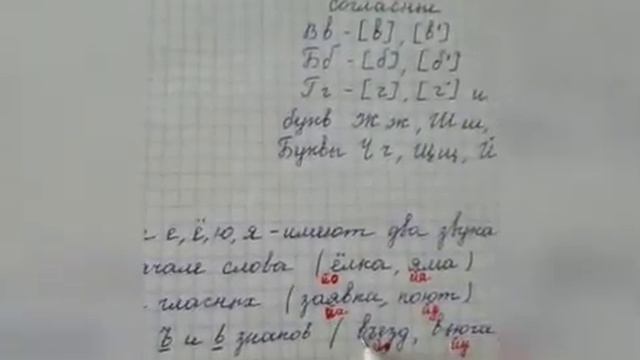 согласные
Вв - [в], [в']
Бб - [б], [б']
Гг - [г], [г'] и
букв Жж, Шш,
Буквы Чч, Щщ, Й
е, ё, ю, я - имеют два звука
чале слова (ёлка, яма)
йо йа
гласных (заявка, поют)
йа йу
Ъ и Ь знаков (въезд, вьюга
йэ йу